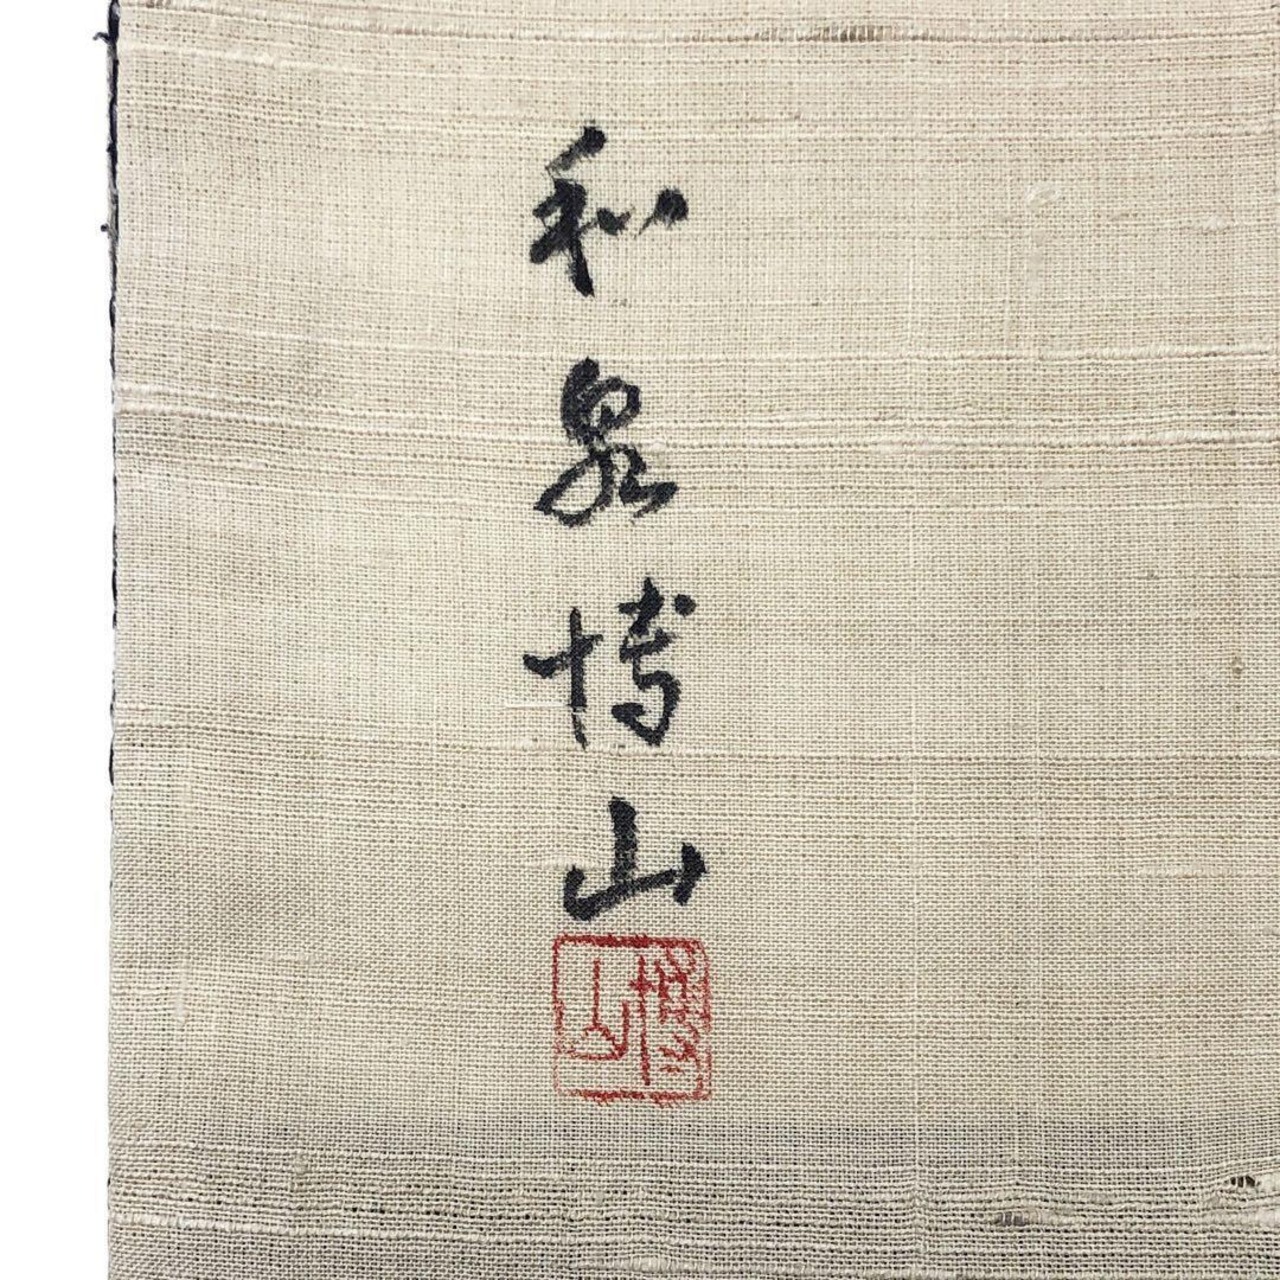 和泉博山
博山